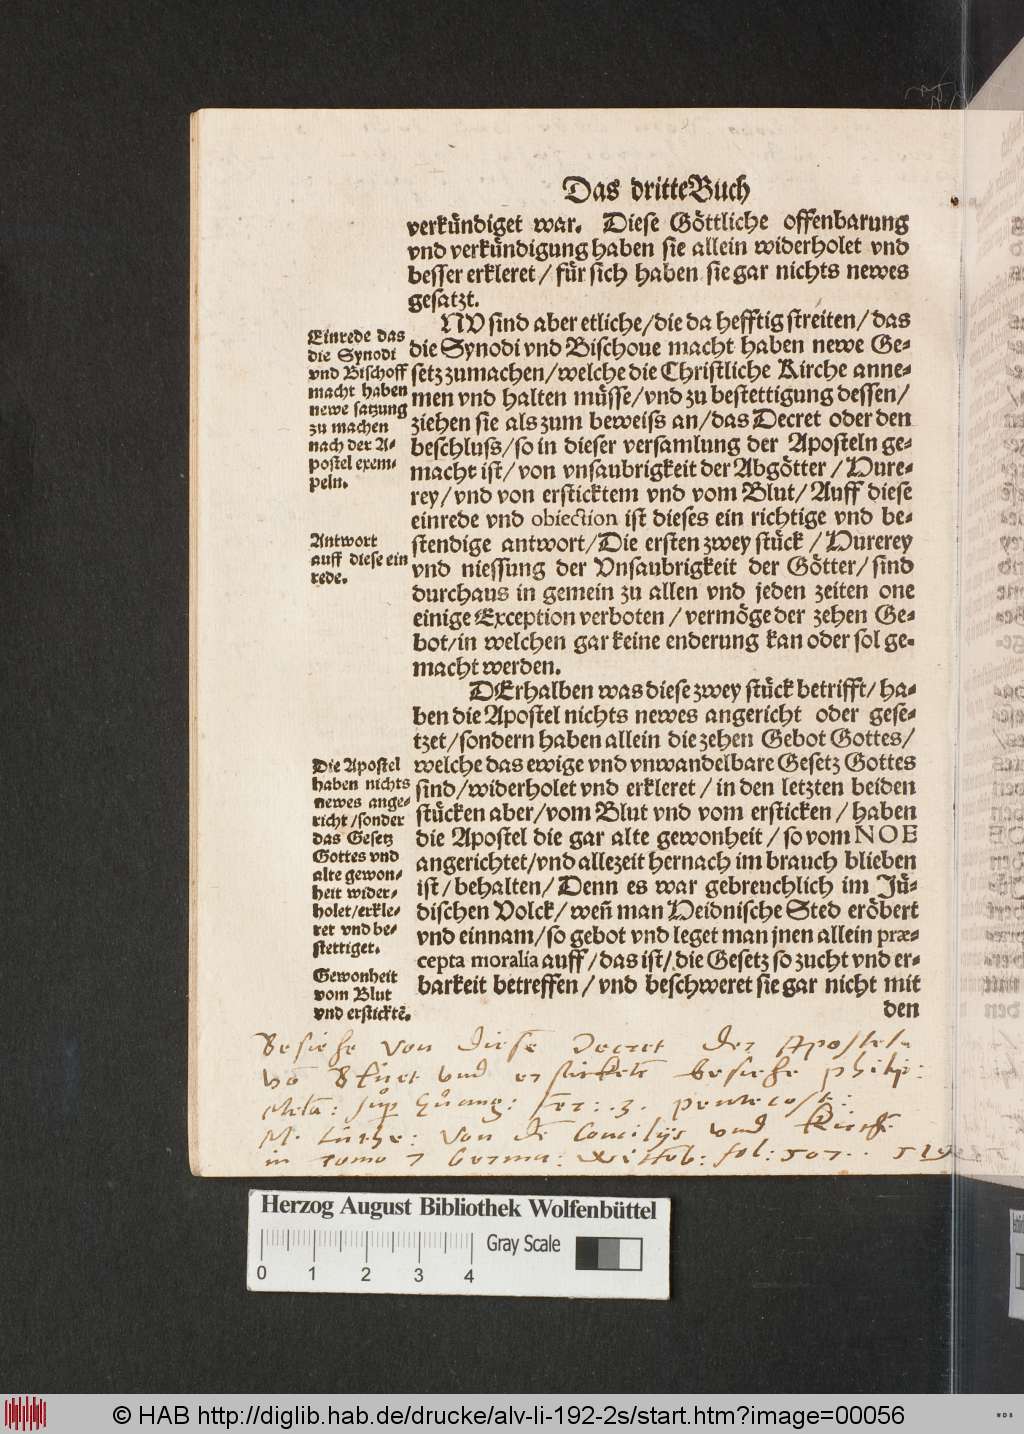 Das dritte Buch
verkündiget war. Diese Göttliche offenbarung
vnd verkündigung haben sie allein widerholet vnd
besser erkleret / für sich haben sie gar nichts newes
gesatzt.
NV sind aber etliche / die da hefftig streiten / das
die Synodi vnd Bischoue macht haben newe Ge-
setz zumachen / welche die Christliche Kirche anne-
men vnd halten müsse / vnd zu bestettigung dessen /
ziehen sie als zum beweiss an / das Decret oder den
beschluss / so in dieser versamlung der Aposteln ge-
macht ist / von vnsaubrigkeit der Abgötter / Hure-
rey / vnd von ersticktem vnd vom Blut / Auff diese
einrede vnd obiection ist dieses ein richtige vnd be-
stendige antwort / Die ersten zwey stück / Hurerey
vnd niessung der Vnsaubrigkeit der Götter / sind
durchaus in gemein zu allen vnd jeden zeiten one
einige Exception verboten / vermöge der zehen Ge-
bot / in welchen gar keine enderung kan oder sol ge-
macht werden.
DErhalben was diese zwey stück betrifft / ha-
ben die Apostel nichts newes angericht oder gese-
tzet / sondern haben allein die zehen Gebot Gottes /
welche das ewige vnd vnwandelbare Gesetz Gottes
sind / widerholet vnd erkleret / in den letzten beiden
stücken aber / vom Blut vnd vom ersticken / haben
die Apostel die gar alte gewonheit / so vom NOE
angerichtet / vnd allezeit hernach im brauch blieben
ist / behalten / Denn es war gebreuchlich im Jü-
dischen Volck / weñ man Heidnische Sted eröbert
vnd einnam / so gebot vnd leget man jnen allein præ-
cepta moralia auff / das ist / die Gesetz so zucht vnd er-
barkeit betreffen / vnd beschweret sie gar nicht mit
den
Einrede das
die Synodi
vnd Bischoff
macht haben
newe satzung
zu machen
nach der A-
postel exem-
peln.
Antwort
auff diese ein
rede.
Die Apostel
haben nichts
newes ange-
richt / sonder
das Gesetz
Gottes vnd
alte gewon-
heit wider-
holet / erkle-
ret vnd be-
stettiget.
Gewonheit
vom Blut
vnd ersticktē.
Besiehe von diesē Decret der Aposteln
vō Bluet vnd ersticketē besiehe Philip:
Melā: sup Euang: fer: 3. pentecost:
M. Luthe: Von dē Concilijs vnd Kirchē
in tomo 7 Germa: Witteb: fol: 507.
Herzog August Bibliothek Wolfenbüttel
Gray Scale
0 1 2 3 4
© HAB http://diglib.hab.de/drucke/alv-li-192-2s/start.htm?image=00056